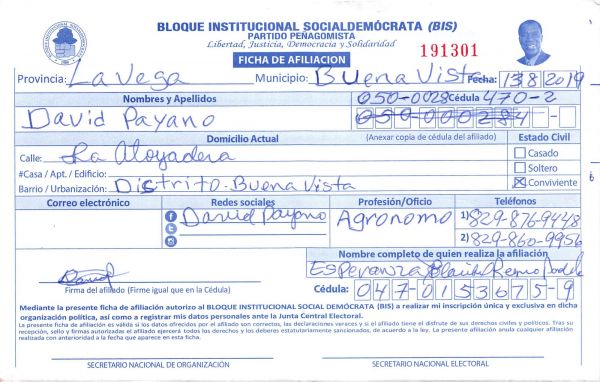 BLOQUE INSTITUCIONAL SOCIALDEMÓCRATA (BIS)
PARTIDO PEÑAGOMISTA
Libertad, Justicia, Democracia y Solidaridad
191301
FICHA DE AFILIACION
Provincia: La Vega Municipio: Buena Vista Fecha: 13 8 2019
Nombres y Apellidos 050-0028 Cédula 470-2
David Payano
Domicilio Actual (Anexar copia de cédula del afiliado) Estado Civil
Calle: La
Casado
#Casa / Apt. / Edificio:
Soltero
Barrio / Urbanización: Distrito Buena Vista
Conviviente
Correo electrónico Redes sociales Profesión/Oficio Teléfonos
David Payano Agronomo 1) 829-876-9448
2) 829-860-9956
Nombre completo de quien realiza la afiliación
Esperanza
David
Firma del afiliado (Firme igual que en la Cédula)
Cédula: 047-0153675-9
Mediante la presente ficha de afiliación autorizo al BLOQUE INSTITUCIONAL SOCIAL DEMÓCRATA (BIS) a realizar mi inscripción única y exclusiva en dicha
organización política, así como a registrar mis datos personales ante la Junta Central Electoral.
La presente ficha de afiliación es válida si los datos ofrecidos por el afiliado son correctos, las declaraciones veraces y si el afiliado tiene el disfrute de sus derechos civiles y políticos. Tras su
recepción, sello y firmas autorizadas el afiliado ejercerá todos los derechos y los deberes estatutariamente sancionados, de acuerdo a la ley. La presente afiliación anula cualquier afiliación
realizada con anterioridad a la fecha que aparece en esta ficha.
SECRETARIO NACIONAL DE ORGANIZACIÓN SECRETARIO NACIONAL ELECTORAL